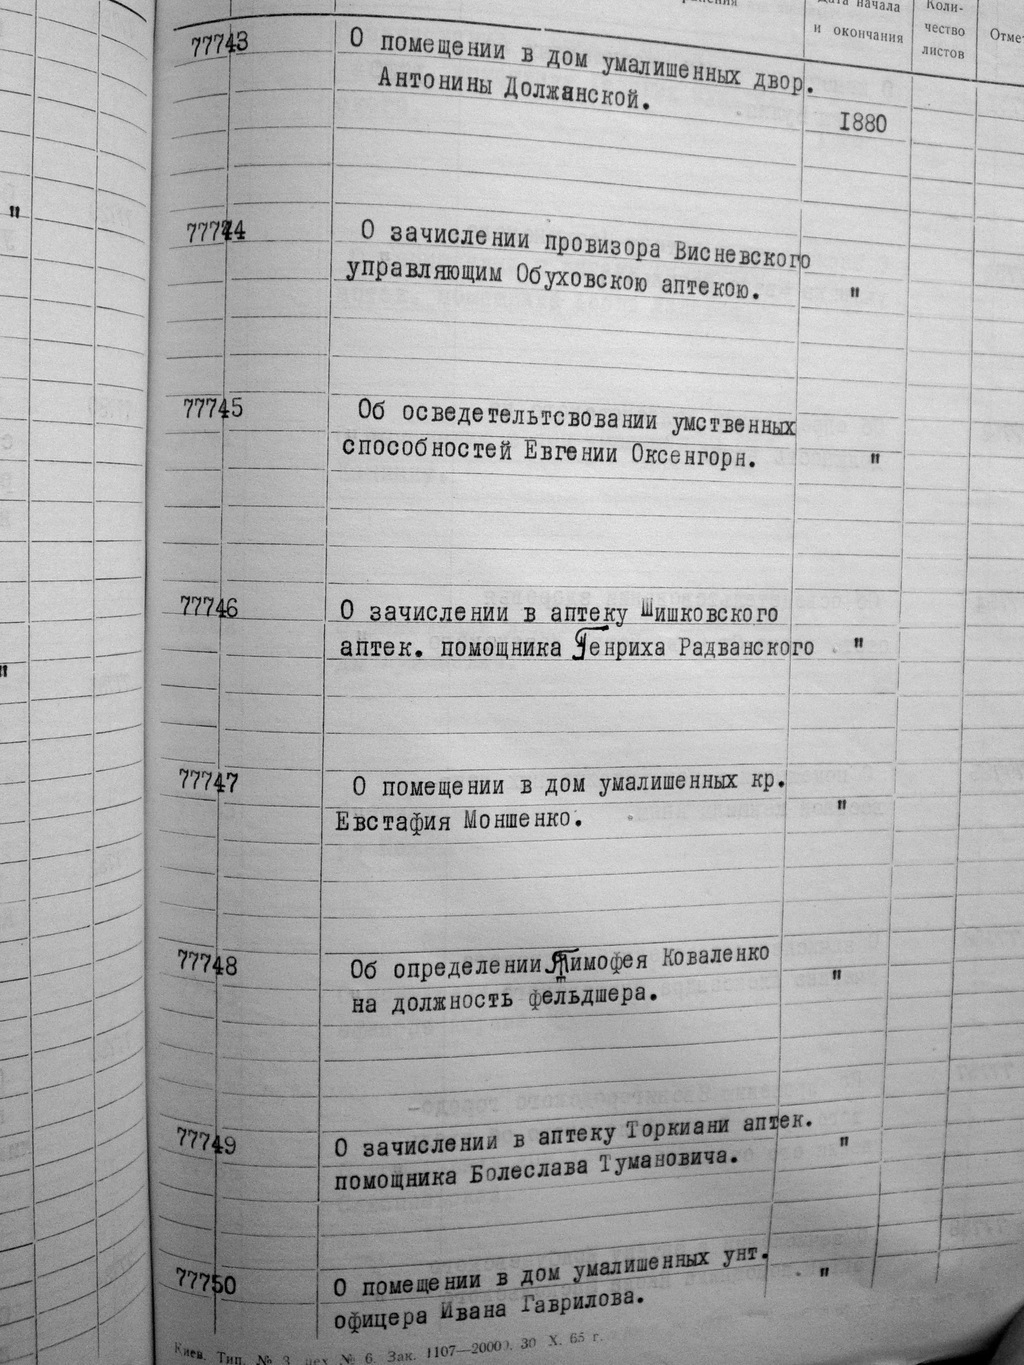 Дата начала
и окончания
Коли-
чество
листов
77743 О помещении в дом умалишенных двор.
Антонины Должанской.
1880
77744 О зачислении провизора Висневского
управляющим Обуховскою аптекою. "
77745 Об осведетельтсвовании умственных
способностей Евгении Оксенгорн. "
77746 О зачислении в аптеку Шишковского
аптек. помощника Генриха Радванского "
77747 О помещении в дом умалишенных кр.
Евстафия Моншенко. "
77748 Об определении Тимофея Коваленко
на должность фельдшера. "
77749 О зачислении в аптеку Торкиани аптек.
помощника Болеслава Тумановича. "
77750 О помещении в дом умалишенных унт.
офицера Ивана Гаврилова. "
Киев. Тип. № 3, цех № 6. Зак. 1107—20000. 30 X. 65 г.